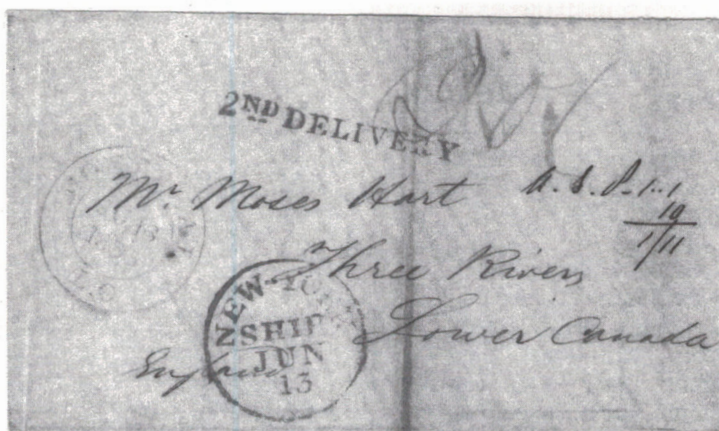 2ND DELIVERY
Mr. Moses Hart
1..1
10
1/11
Three Rivers
Lower Canada
England
NEW-YORK
SHIP
JUN
13